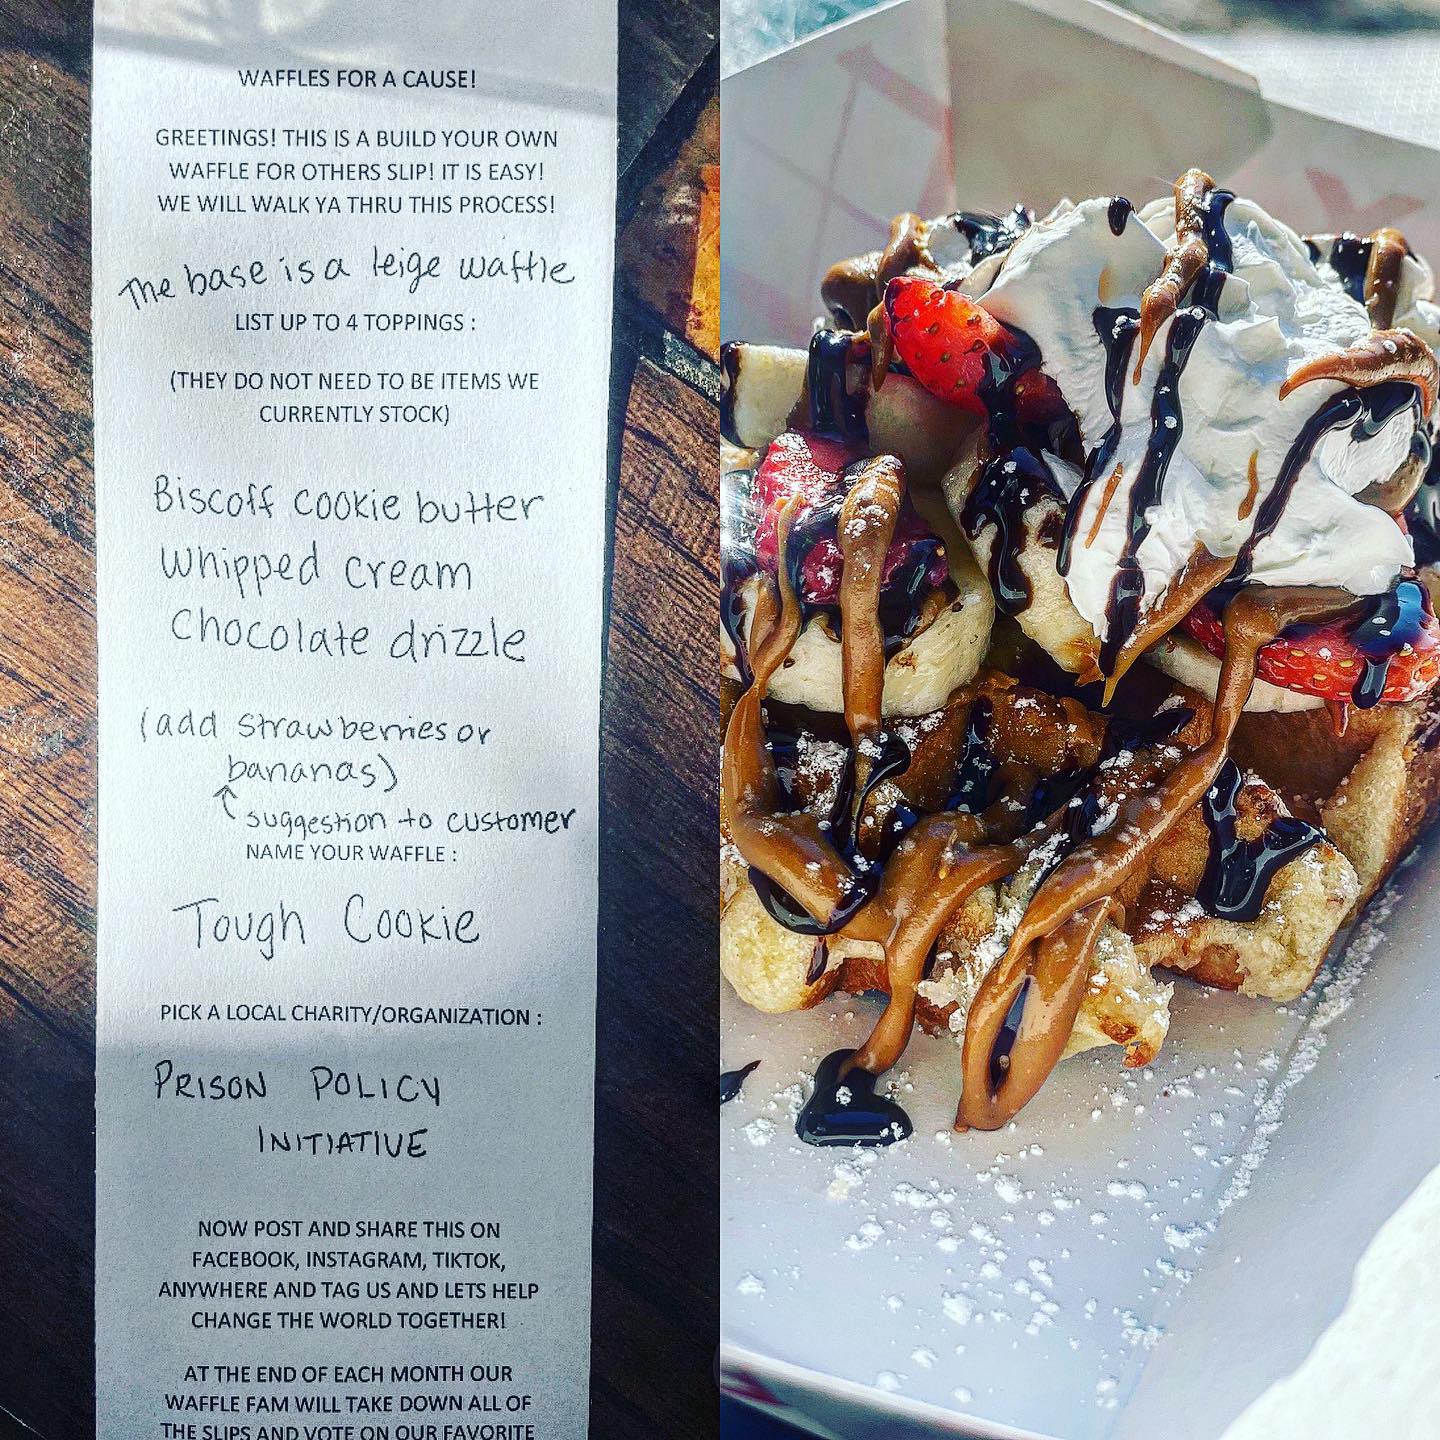 WAFFLES FOR A CAUSE!
GREETINGS! THIS IS A BUILD YOUR OWN
WAFFLE FOR OTHERS SLIP! IT IS EASY!
WE WILL WALK YA THRU THIS PROCESS!
The base is a leige waffle
LIST UP TO 4 TOPPINGS :
(THEY DO NOT NEED TO BE ITEMS WE
CURRENTLY STOCK)
Biscoff cookie butter
Whipped cream
Chocolate drizzle
(add strawberries or
bananas)
suggestion to customer
NAME YOUR WAFFLE :
Tough Cookie
PICK A LOCAL CHARITY/ORGANIZATION :
PRISON POLICY
INITIATIVE
NOW POST AND SHARE THIS ON
FACEBOOK, INSTAGRAM, TIKTOK,
ANYWHERE AND TAG US AND LETS HELP
CHANGE THE WORLD TOGETHER!
AT THE END OF EACH MONTH OUR
WAFFLE FAM WILL TAKE DOWN ALL OF
THE SLIPS AND VOTE ON OUR FAVORITE